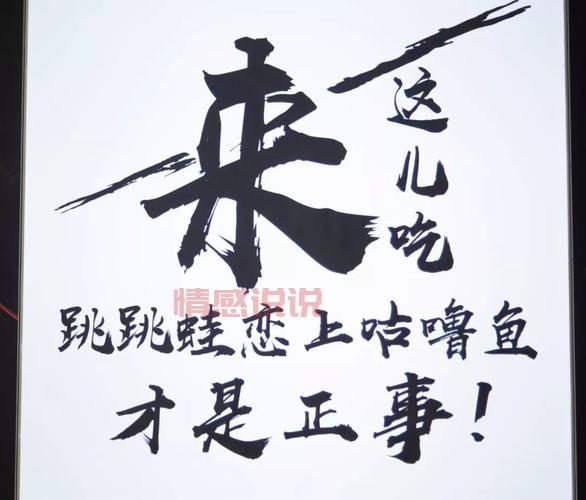 来
这儿吃
情感说说
跳跳蛙恋上咕噜鱼
才是正事！